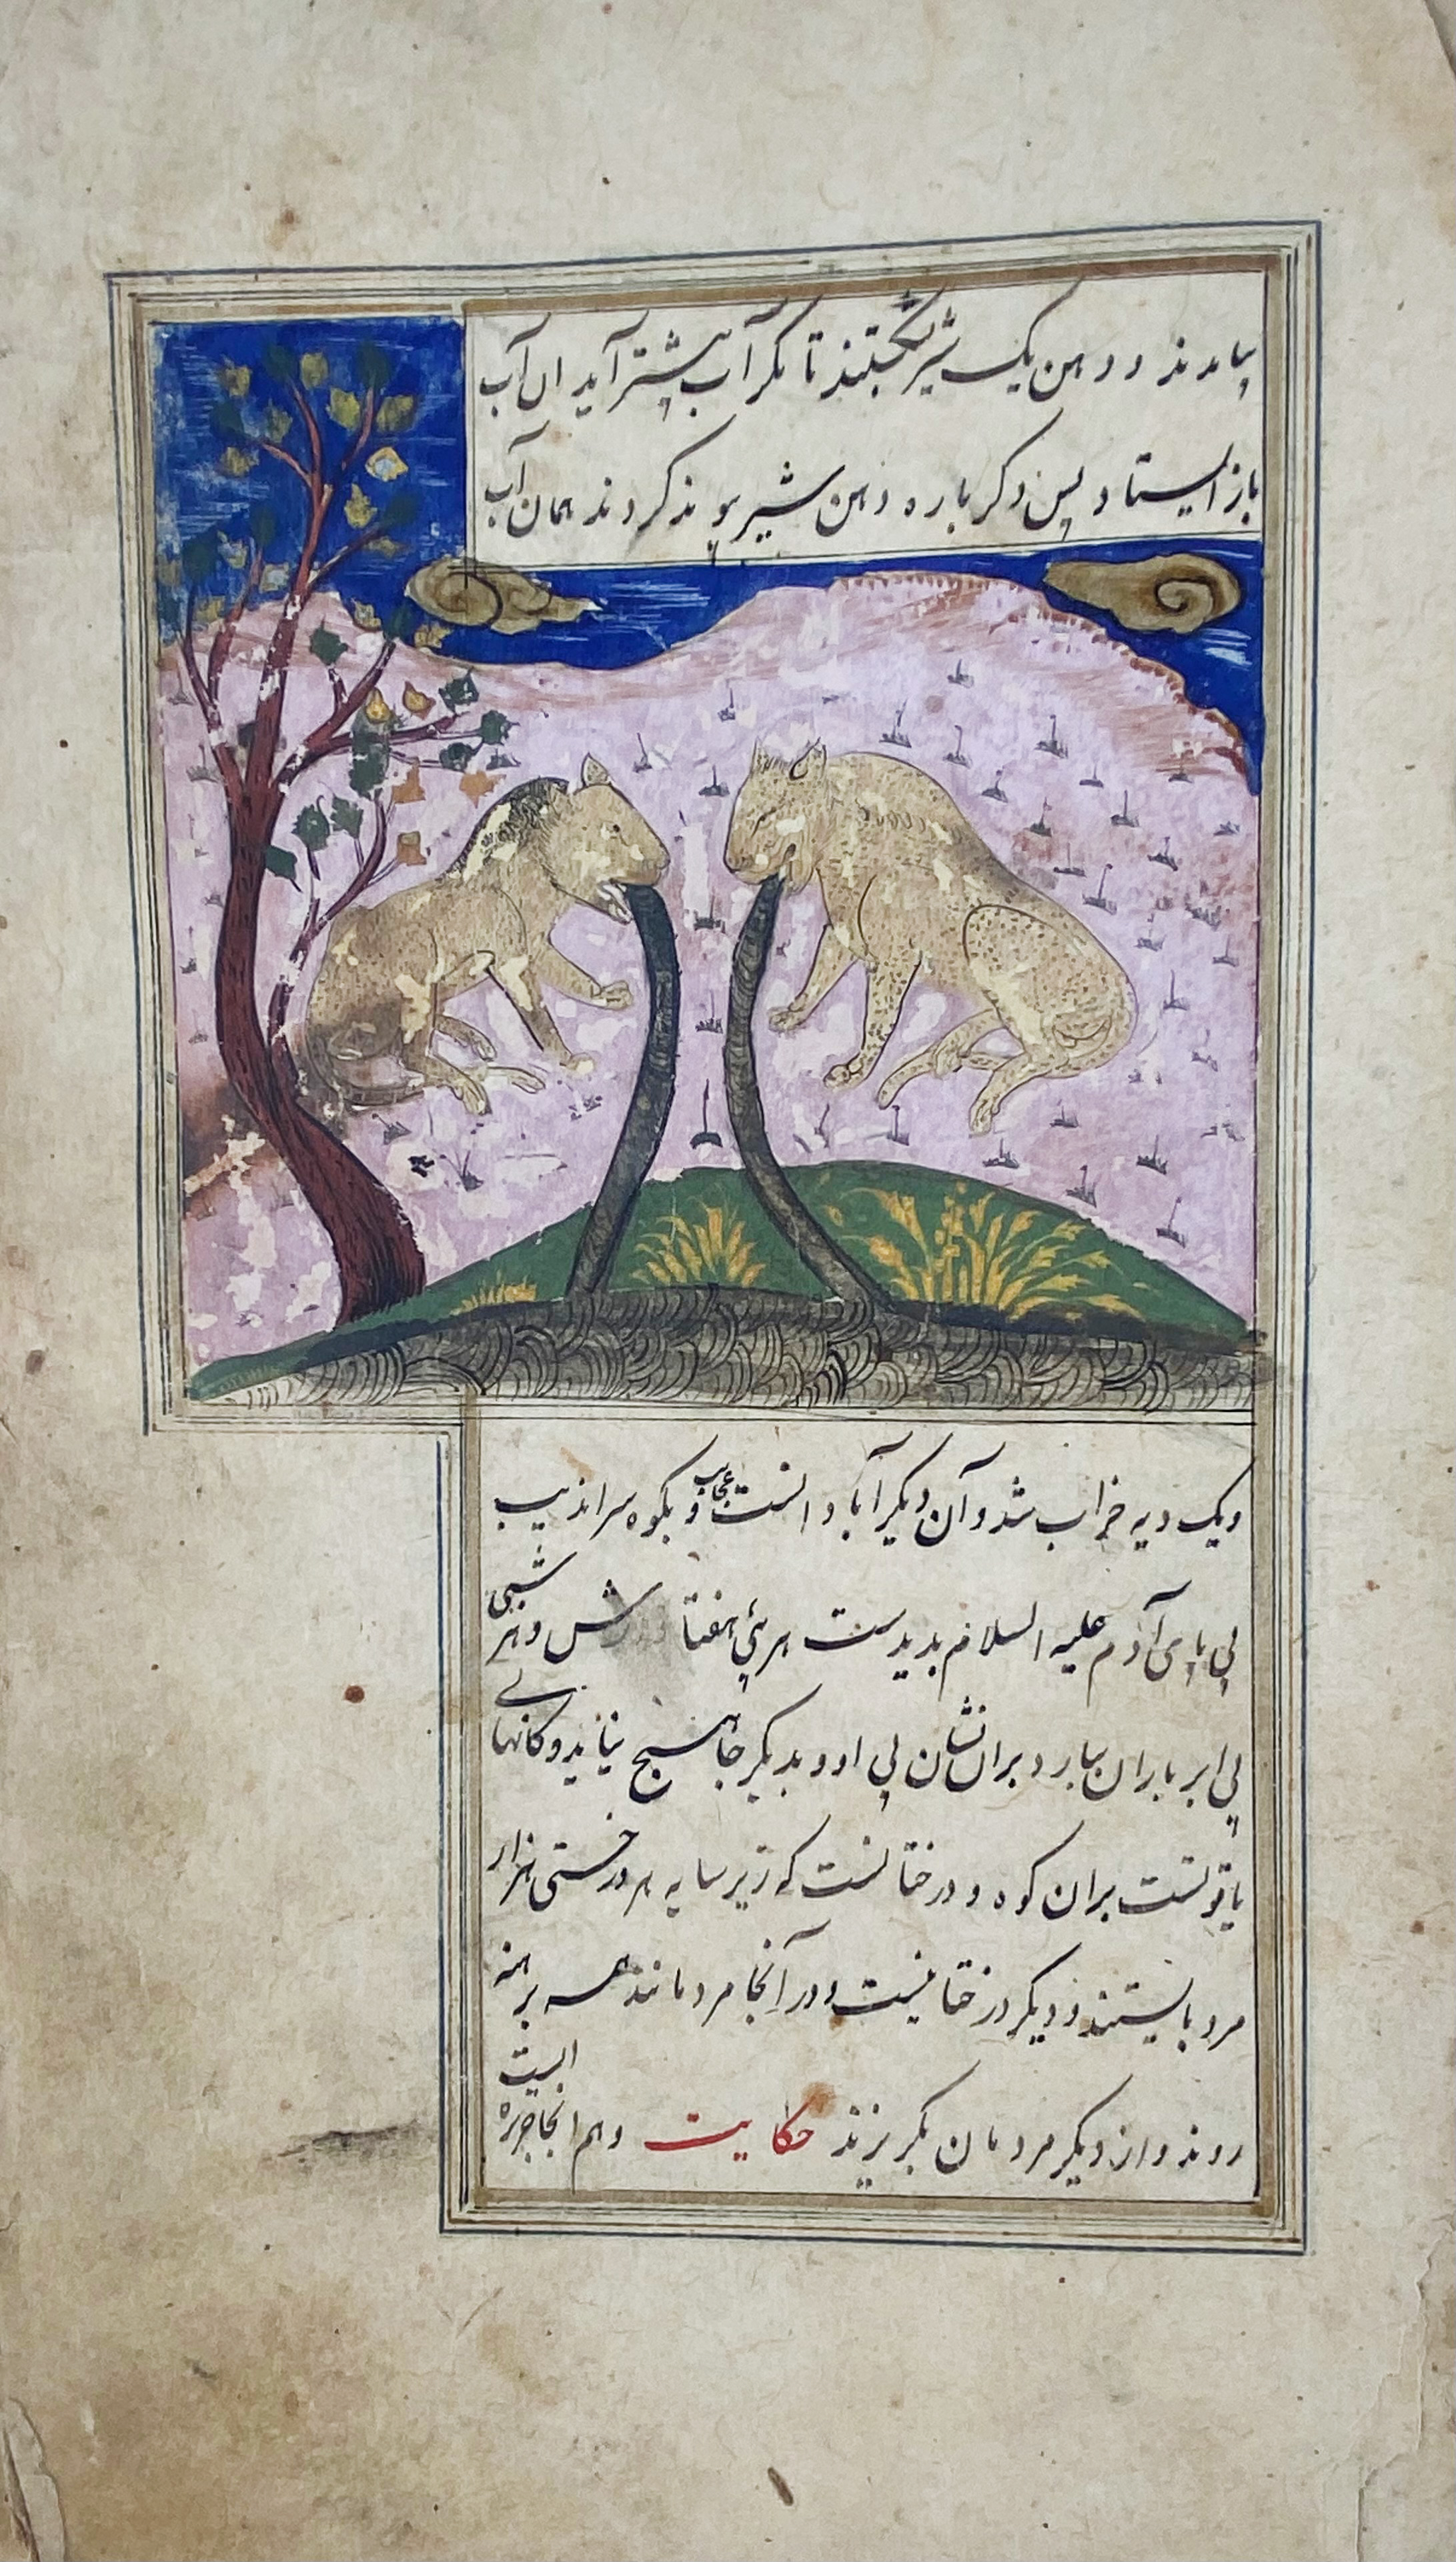 بیامدند و دهن یک شیر بشکستند تا مگر آب بیشتر آید ان آب
باز ایستاد پس دکر باره دهن شیر پیوند کردند همان آب
ویک دیه خراب شد و آن دیکر آبادانست عجایب و بکوه سراندیب
پی پای آدم علیه السلام بدیدست هر پی هفتاد رش و هر شبی
بی ابر باران ببارد بران نشان پی او و بدیکر جا هیچ نیاید و کانهای
یاقوتست بران کوه و درختانست که زیر سایه هر درختی هزار
مرد بایستند و دیکر درختانیست و در آنجا مردمانند همه برهنه
روند و از دیکر مردمان بکریزند حکایت و هم انجا جزیره ایست